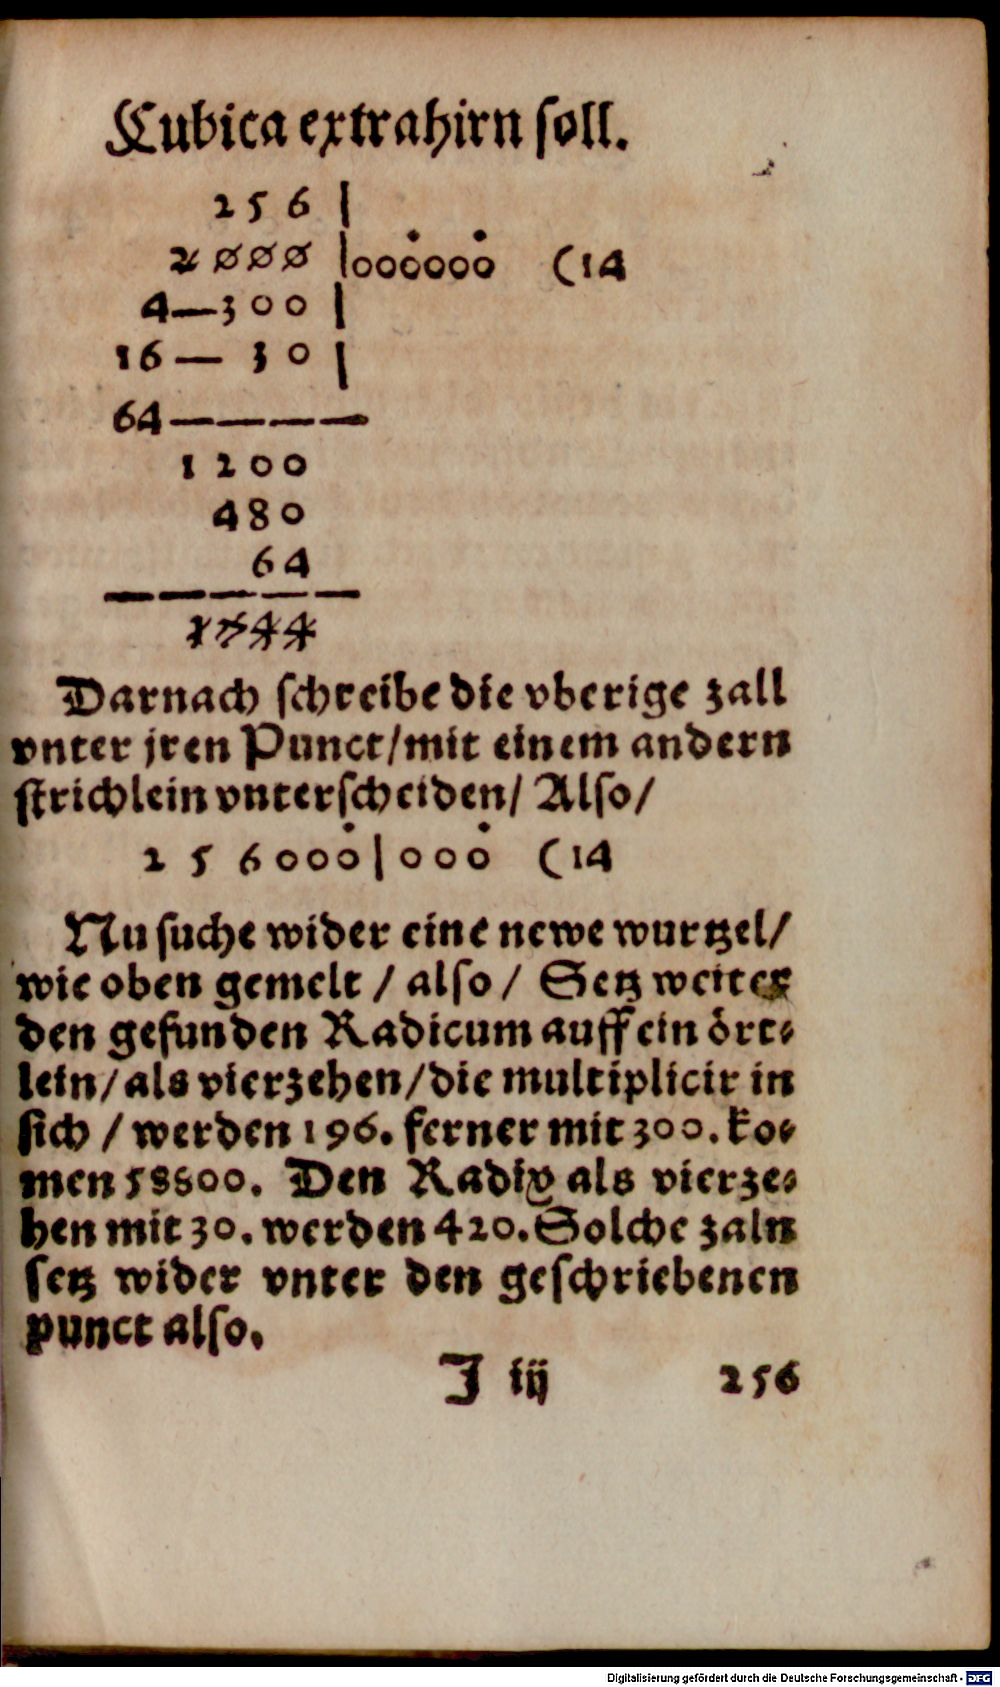 Cubica extrahirn soll.
2 5 6 |
2 0 0 0 |000000 (14
4—300 |
16— 30 |
64————
1200
480
64
1744
Darnach schreibe die vberige zall
vnter jren Punct/mit einem andern
strichlein vnterscheiden/ Also/
2 5 6000|000 (14
Nu suche wider eine newe wurtzel/
wie oben gemelt / also / Setz weiter
den gefunden Radicum auff ein ört⸗
lein/als vierzehen/die multiplicir in
sich / werden 196. ferner mit 300. ko⸗
men 58800. Den Radix als vierze⸗
hen mit 30. werden 420. Solche zaln
setz wider vnter den geschriebenen
punct also.
J iij 256
Digitalisierung gefördert durch die Deutsche Forschungsgemeinschaft - DFG